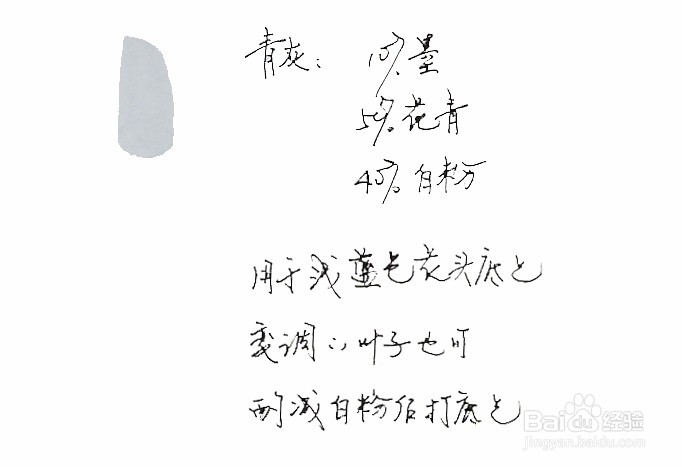 青灰：10%墨
50%花青
40%白粉
用于浅蓝色花头底色
变调：叶子也可
酌减白粉 打底色
Baidu经验
jingyan.baidu.com